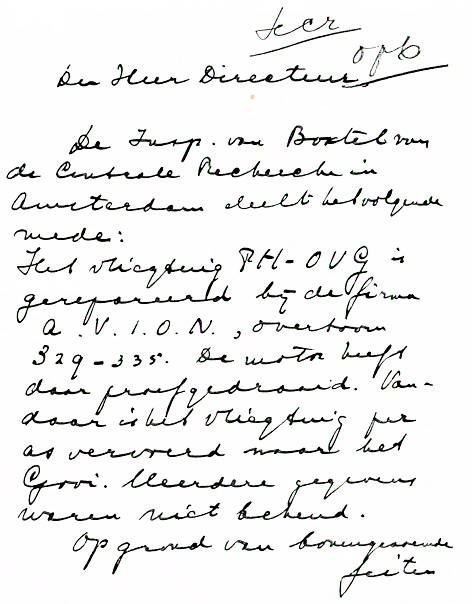 Secr
opb
Den Heer Directeur,
De Insp. van Boxtel van
de Centrale Recherche in
Amsterdam deelt het volgende
mede:
Het vliegtuig PH-OVG is
gerepareerd bij de firma
A.V.I.O.N., overtoom
329-335. De motor heeft
daar proefgedraaid. Van-
daar is het vliegtuig per
as vervoerd naar het
Gooi. Meerdere gegevens
waren niet bekend.
Op grond van bovengenoemde
feiten